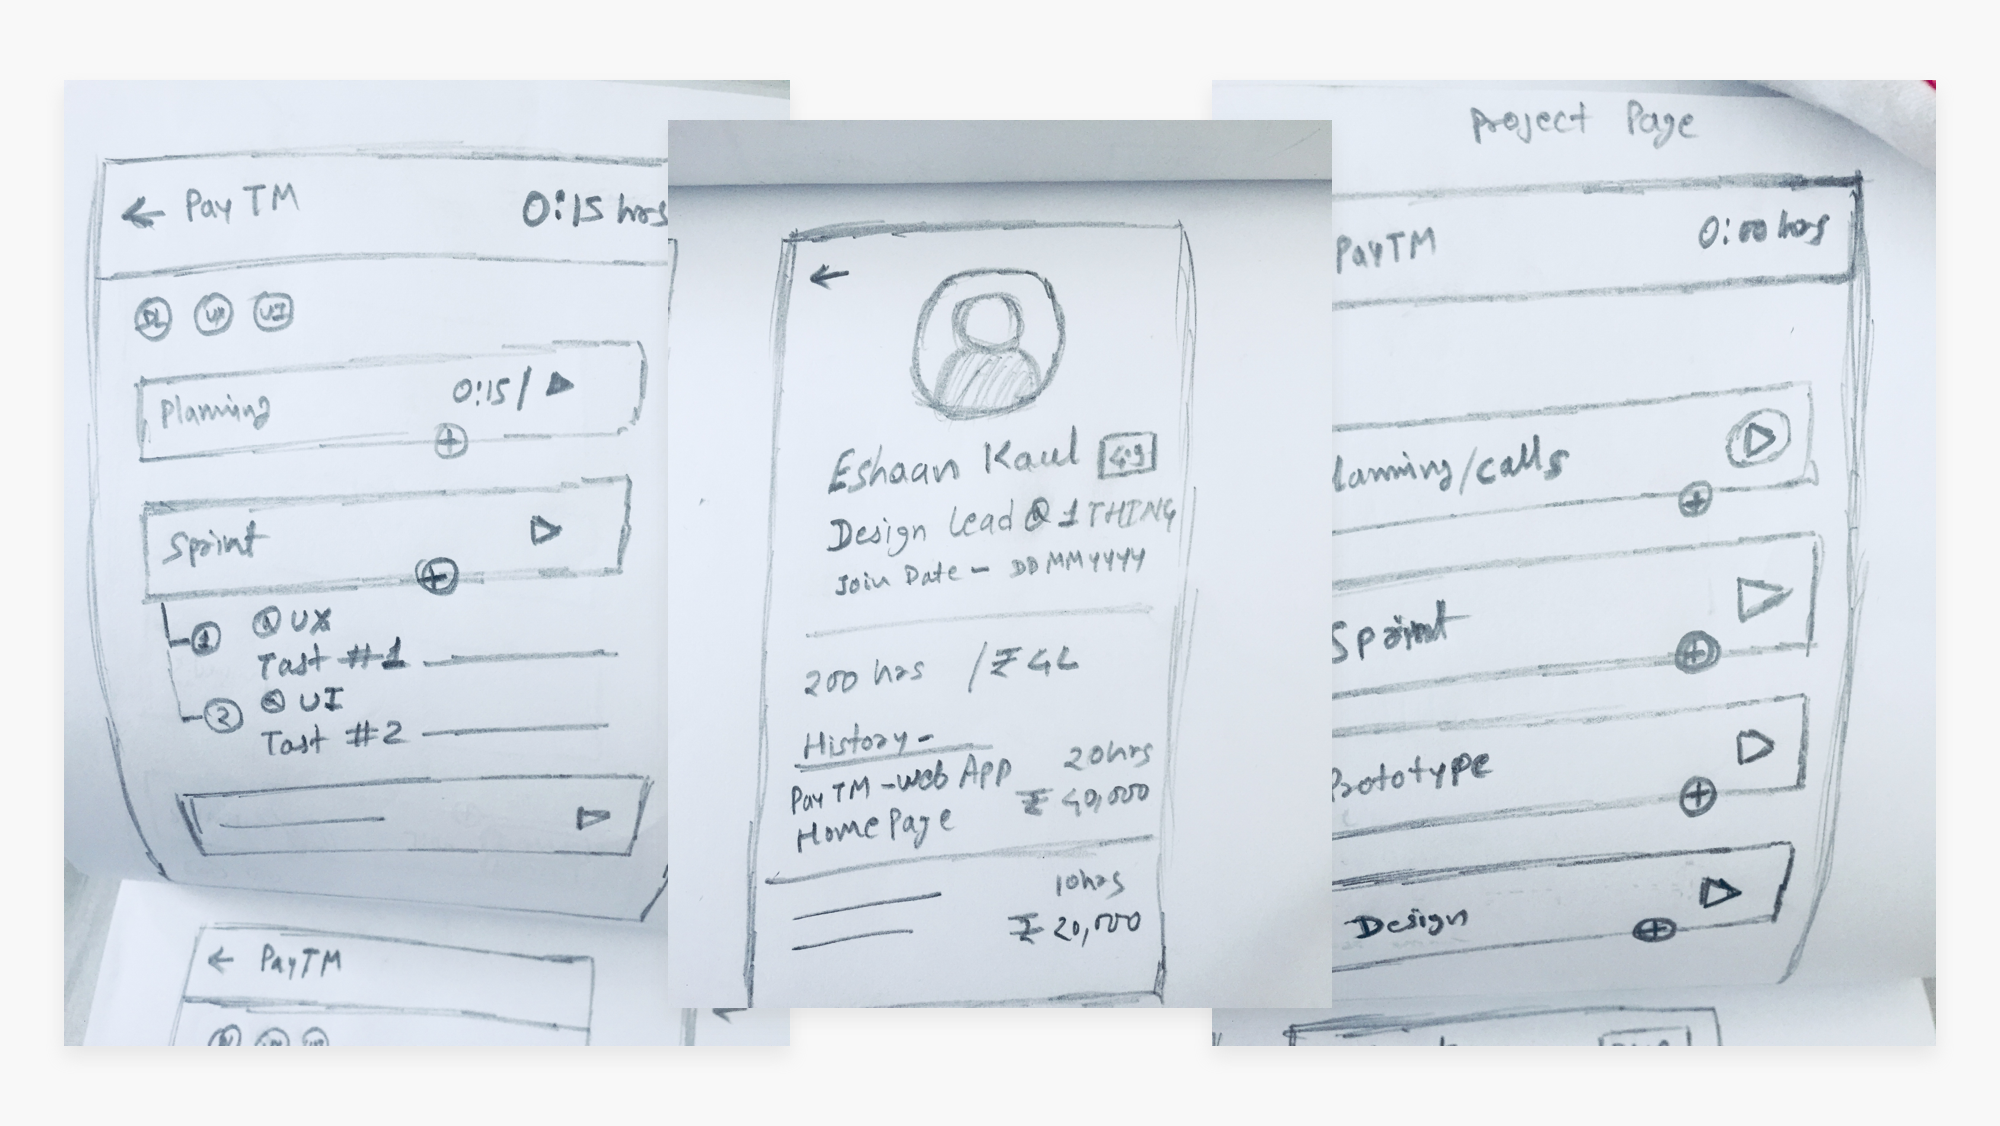 ← PayTM 0:15 hrs
DL UX UI
Planning 0:15 /
Sprint
1 @ UX
Tast #1
2 @ UI
Tast #2
← PayTM
←
Eshaan Kaul 4.9
Design Lead @ 1THING
Join Date - DDMMYYYY
200 hrs / ₹ 4L
History -
PayTM - Web App 20hrs
Home Page ₹ 40,000
10hrs
₹ 20,000
Project Page
PayTM 0:00 hrs
lanning/calls
Sprint
Prototype
Design